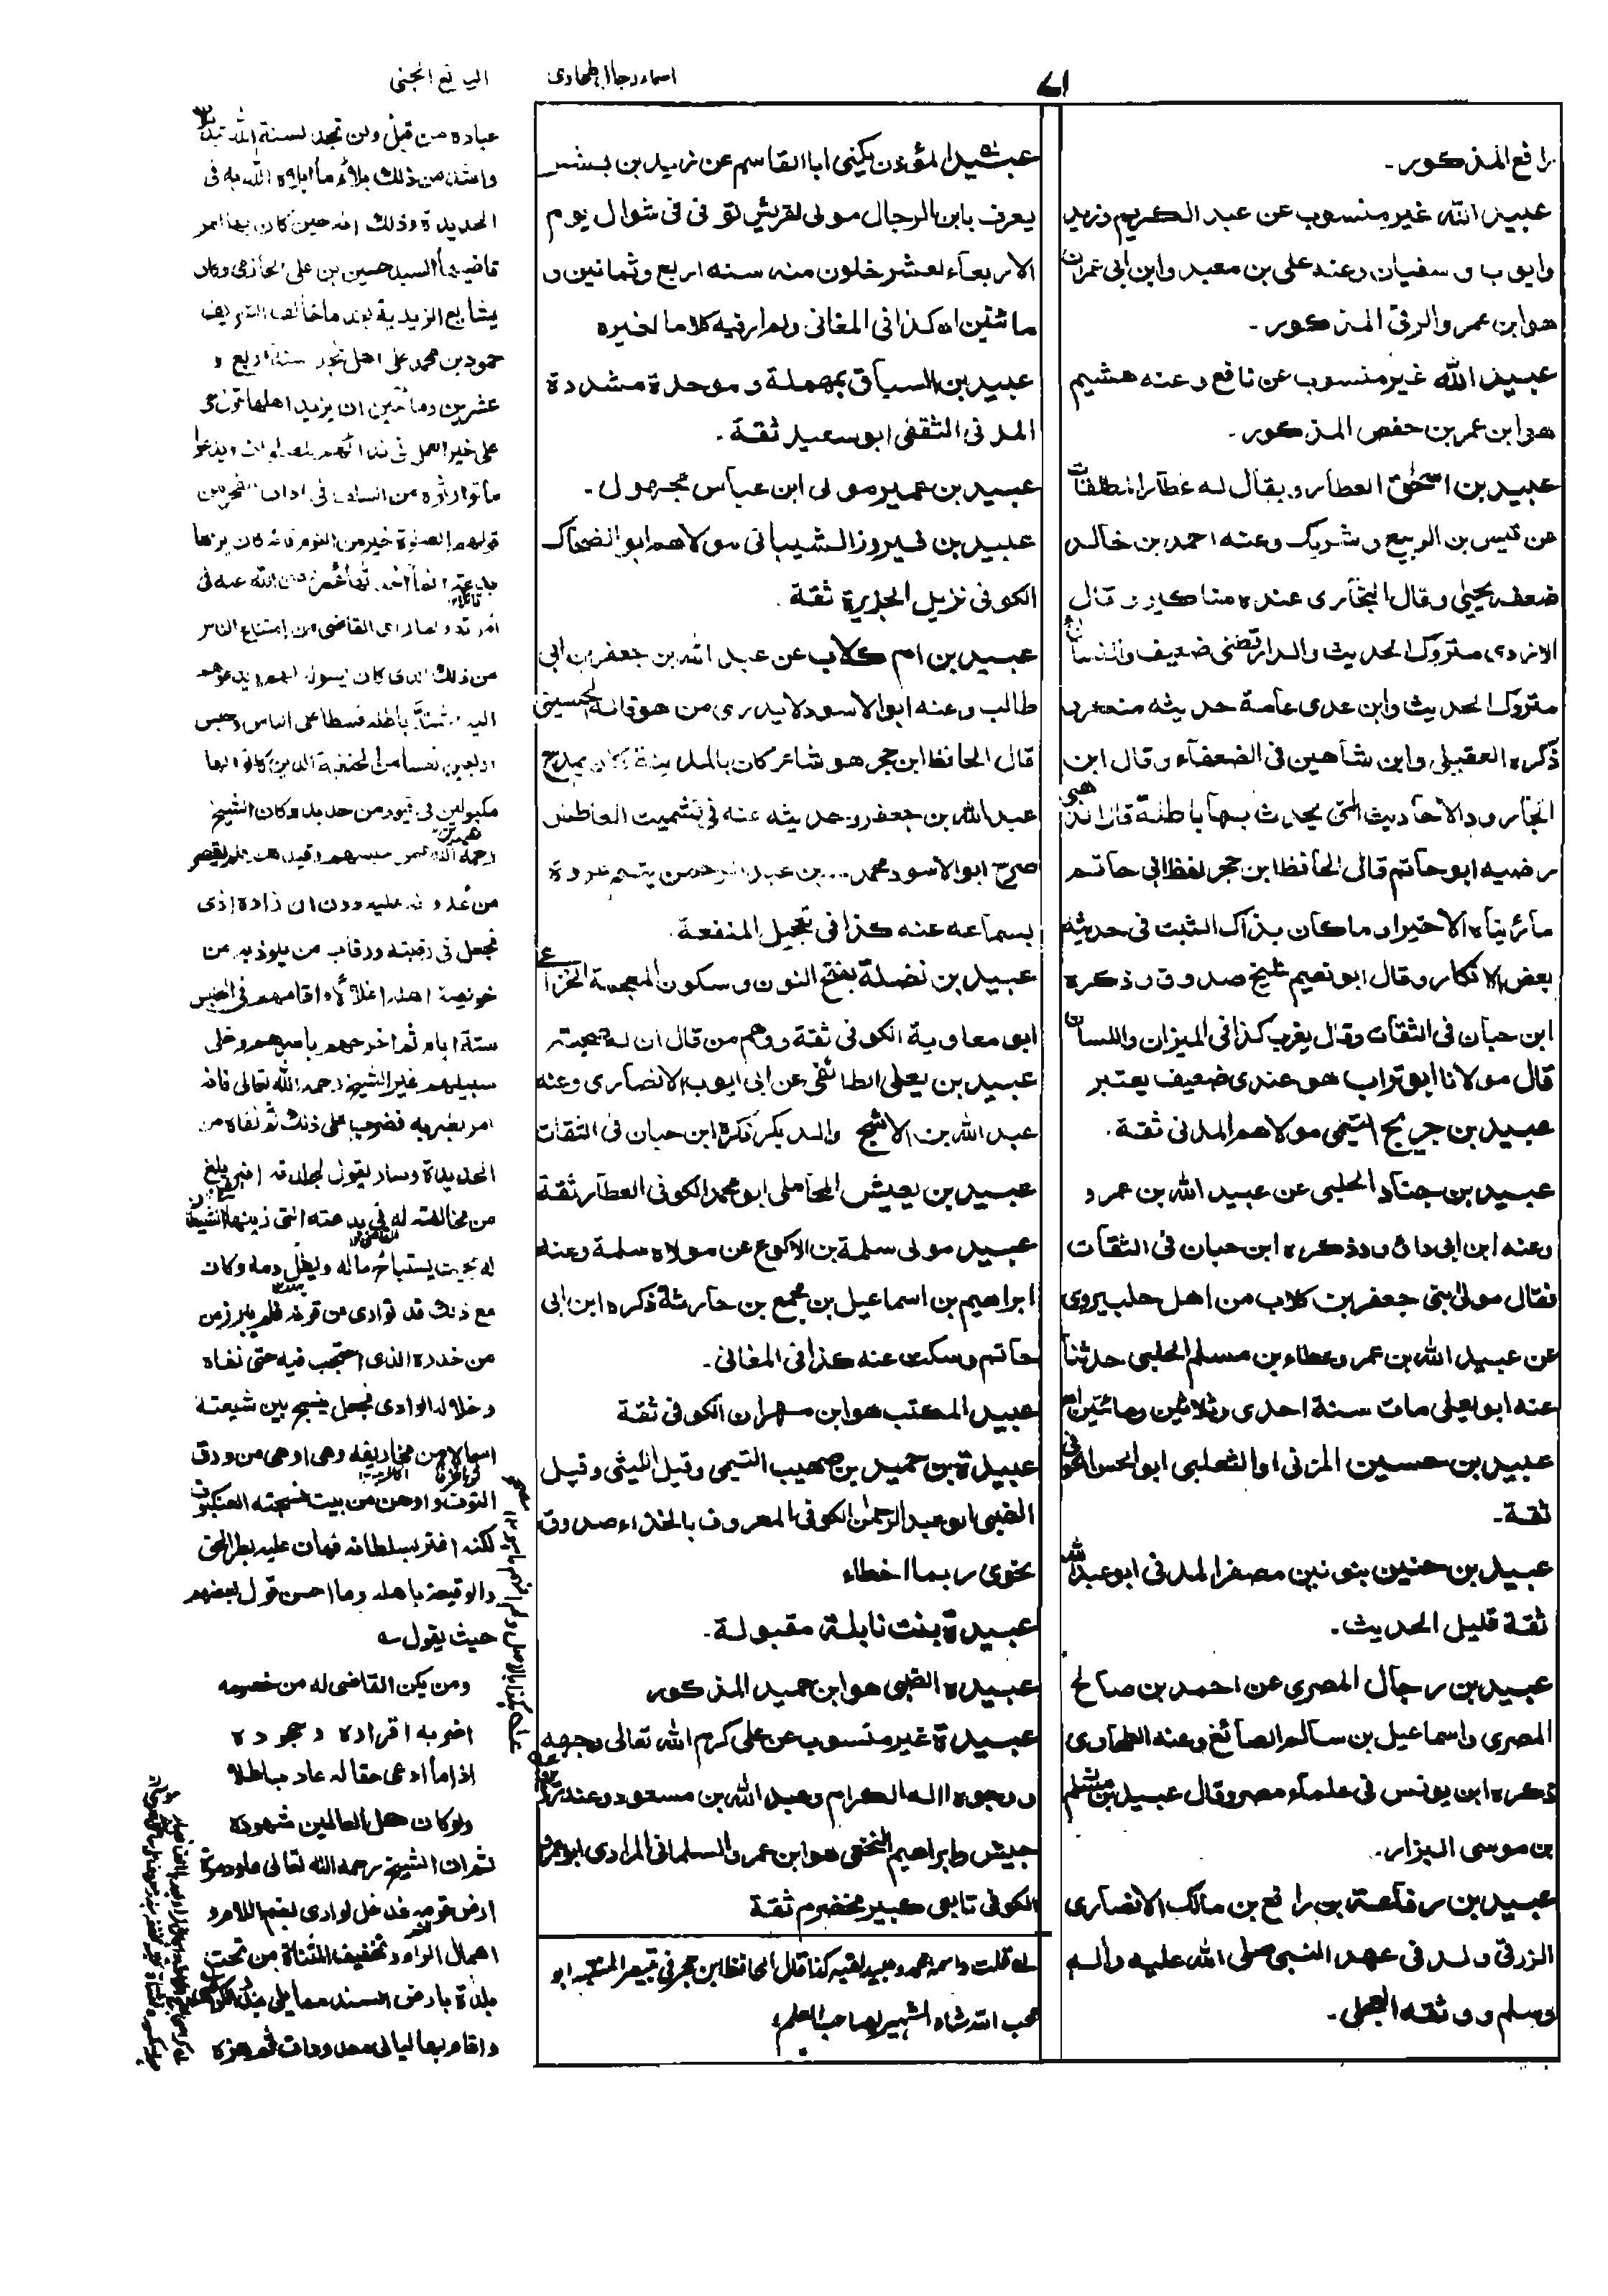 ٨١
اسماء رجال الطحاوى
اليانع الجنى
رافع المذكور-
عبيد الله غير منسوب عن عبد الكريم وزيد
وايوب و سفيان وعنه على بن معبد وابن ابى عمران
هو ابن عمر والرقى المذكور-
عبيد الله غير منسوب عن نافع وعنه هشيم
هو ابن عمر بن حفص المذكور-
عبيد بن اسحٰق العطار ويقال له عطار المطلقات
عن قيس بن الربيع وشريك وعنه احمد بن خالد
ضعفه يحيٰى وقال البخارى عنده مناكير وقال
الازدى متروك الحديث والدارقطنى ضعيف والنسائى
متروك الحديث وابن عدى عامة حديثه منكر
ذكره العقيلى وابن شاهين فى الضعفاء وقال ابن
الجارود والاحاديث التى يحدث بها باطلة قال الذهبى
رضيه ابو حاتم قال الحافظ ابن حجر لفظ ابى حاتم
ما رئيناه الا خيرا و ما كان بذاك الثبت فى حديثه
بعض الانكار وقال ابو نعيم شيخ صدوق وذكره
ابن حبان فى الثقات وقال يغرب كذا فى الميزان واللسان
قال مولانا ابو تراب هو عندى ضعيف يعتبر
عبيد بن جريج التيمى مولاهم المدنى ثقة.
عبيد بن جناد الحلبى عن عبيد الله بن عمرو
وعنه ابن ابى داؤد وذكره ابن حبان فى الثقات
فقال مولى بنى جعفر بن كلاب من اهل حلب يروى
عن عبيد الله بن عمر وعطاء بن مسلم الحلبى حدثنا
عنه ابو يعلى مات سنة احدى وثلاثين ومائتين اه
عبيد بن حسين المزنى او الثعلبى ابو الحسن الكوفى
ثقة-
عبيد بن حنين بنونين مصغرا المدنى ابو عبد الله
ثقة قليل الحديث.
عبيد بن رجال المصرى عن احمد بن صالح
المصرى واسماعيل بن سالم الصائغ وعنه الطحاوى
ذكره ابن يونس فى علماء مصر وقال عبيد بن
بن موسى البزار.
عبيد بن رفاعة بن رافع بن مالك الانصارى
الزرقى ولد فى عهد النبى صلى الله عليه وآله
وسلم ووثقه العجلى-
عبيد المؤذن يكنى ابا القاسم عن زيد بن بشر
يعرف بابن الرجال مولى لقريش توفى فى شوال يوم
الاربعاء لعشر خلون منه سنه اربع وثمانين و
مائتين اه كذا فى المغانى ولم ار فيه كلاما لغيره
عبيد بن السباق بمهملة وموحدة مشددة
المدنى الثقفى ابو سعيد ثقة.
عبيد بن عمير مولى ابن عباس مجهول-
عبيد بن فيروز الشيبانى مولاهم ابو الضحاك
الكوفى نزيل الجزيرة ثقة.
عبيد بن ام كلاب عن عبد الله بن جعفر بن ابى
طالب وعنه ابو الاسود لا يدرى من هو قاله الحسينى
قال الحافظ ابن حجر هو شاعر كان بالمدينة كان يمدح
عبد الله بن جعفر وحديثه عنه فى تشميت العاطس
صرح ابو الاسود محمد بن عبد الرحمن يتيم عروة
بسماعه عنه كذا فى تعجيل المنفعة.
عبيد بن نضلة بفتح النون وسكون المعجمة الخزاعى
ابو معاوية الكوفى ثقة ووهم من قال ان له صحبة
عبيد بن يعلى الطائفى عن ابى ايوب الانصارى وعنه
عبد الله بن الاشج والد بكير ذكره ابن حبان فى الثقات
عبيد بن يعيش المحاملى ابو محمد الكوفى العطار ثقة
عبيد مولى سلمة بن الاكوع عن مولاه سلمة وعنه
ابراهيم بن اسماعيل بن مجمع بن حارثة ذكره ابن ابى
حاتم وسكت عنه كذا فى المغانى-
عبيد المكتب هو ابن مهران الكوفى ثقة
عبيدة بن حميد بن صهيب التيمى وقيل الليثى وقيل
الضبى ابو عبد الرحمٰن الكوفى المعروف بالحذاء صدوق
نحوى ربما اخطاء
عبيدة بنت نابلة مقبولة-
عبيده الضبى هو ابن حميد المذكور
عبيدة غير منسوب عن على كرم الله تعالى وجهه
ووجوه اله الكرام وعبد الله بن مسعود وعنه زر بن
حبيش وابراهيم النخعى هو ابن عمرو السلمانى المرادى ابو عمرو
الكوفى تابعى كبير مخضرم ثقة
له قلت واسمه محمد وعبيد لقبه كذا قال الحافظ ابن حجر فى تبصير المنتبه ابو
محب الله شاه الشهير بصاحب العلم
عباده من قبل ولن تجد لسنة الله تبديلا
واشد من ذلك بلاء ما ابلاه الله به فى
الحديدة وذلك انه حين كان بها امر
قاضيها السيد حسين بن على الحازمى وكان
يشايع الزيدية بعد ما خالف الشريف
حمود بن محمد على اهل نجد سنة اربع و
عشرين ومائتين ان يزيد اهلها حى
على خير العمل فى ندائهم ويدعوا
ما توارثوه من السلف فى اذان الفجر من
قولهم الصلوة خير من النوم فانه كان يراها
بدعة
من ذلك الذى كان يسول لهم ويدعوهم
اليه اشتد باطله فسطا على الناس وحبس
اربعين نفسا من الحنفية الذين كانوا بها
مكبولين فى قيود من حديد وكان الشيخ
رحمه الله
فجعل فى رقبته ورقاب من يلوذ به من
ستة ايام ثم اخرجهم باسرهم وخلى
سبيلهم غير الشيخ رحمه الله تعالى فانه
امر بضربه فضرب على ذلك ثم نفاه من
الحديدة
من مخالفته له فى بدعته التى زينها الشيطان
له بحيث يستباح ماله ويطل دمه وكان
مع ذلك قد توارى من قومه فلم يبرز من
من خدره الذى احتجب فيه حتى نفاه
وخلا له الوادى فجعل ينسج بين شيعته
اسمالا من مخاريقه وهى اوهى من ورق
التوت واوهن من بيت نسجته العنكبوت
لكنه اغتر بسلطانه فهان عليه بطر الحق
والوقيعة باهله وما احسن قول بعضهم
حيث يقول سه
ومن يكن القاضى له من خصومه
اضر به اقراره وجحوده
اذا ما ادعى مقاله عاد باطلا
ولو كان كل العالمين شهوده
ثم ان الشيخ رحمه الله تعالى عاوده
ارض قومه فدخل لوادى بفتح اللام و
اهمال الواو وتخفيف المثناة من تحت
بلدة بارض السند مما يلى
واقام بها ليالى معدودات ثم هزه